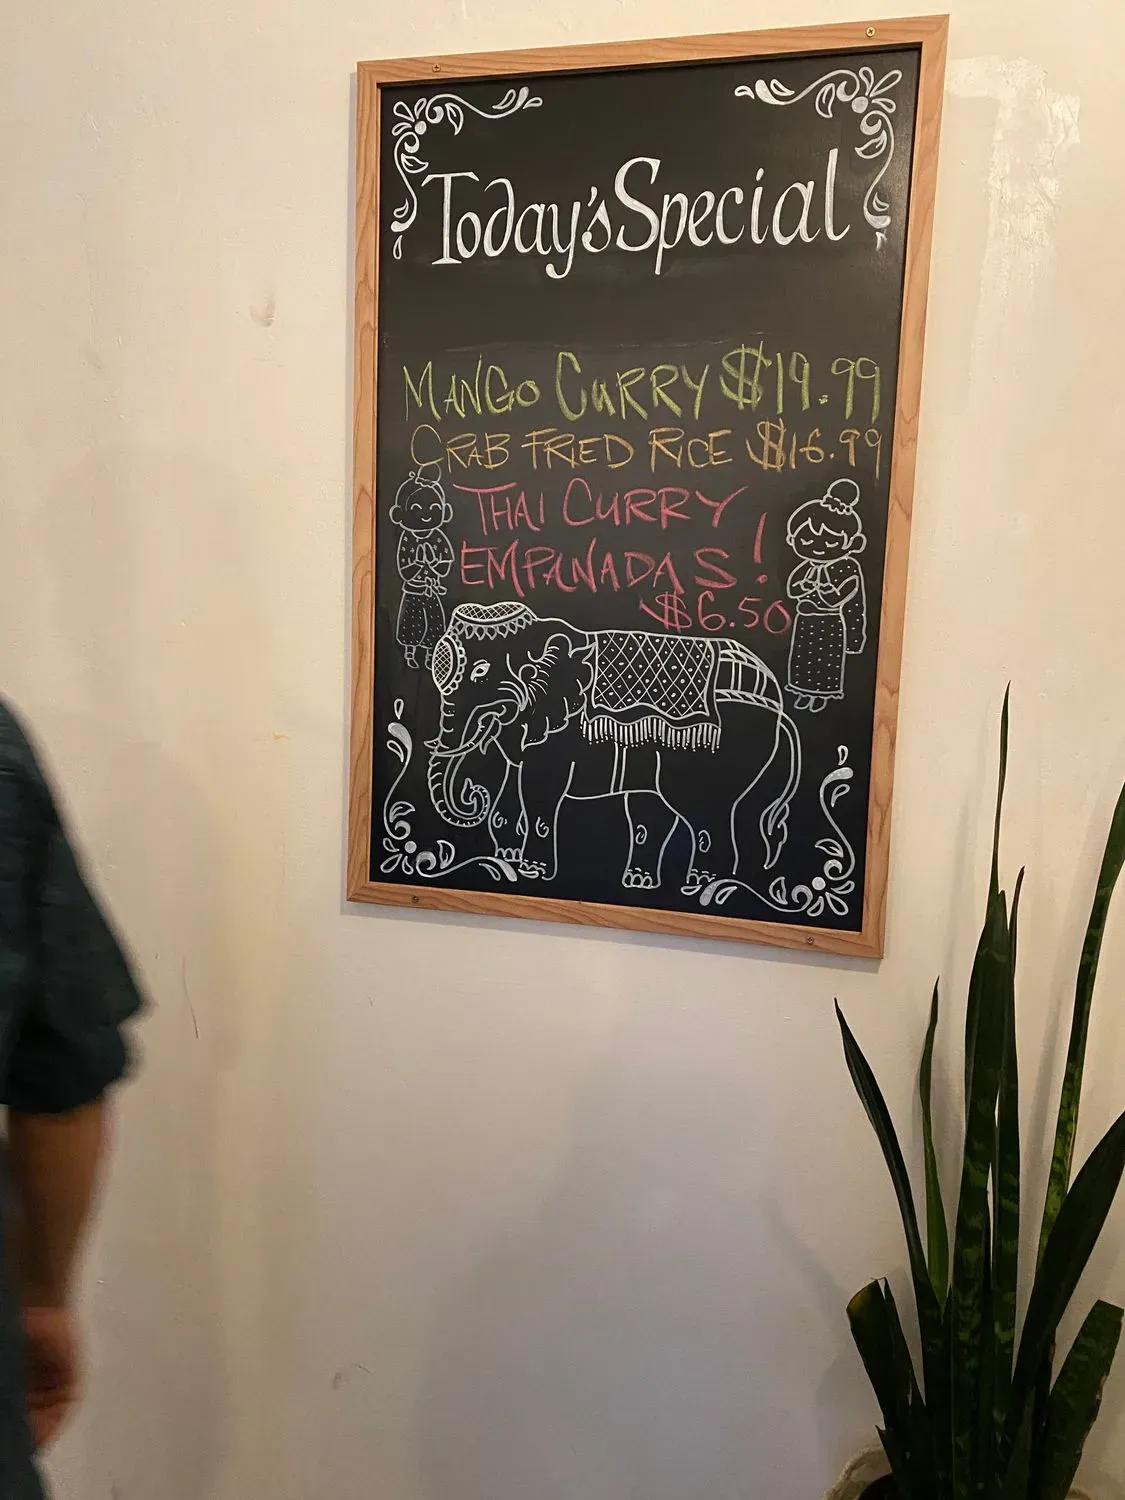 Today's Special
MANGO CURRY $19.99
CRAB FRIED RICE $16.99
THAI CURRY
EMPANADAS!
$6.50